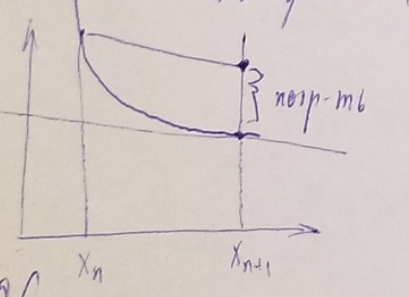 погр-ть
xₙ
xₙ₊₁